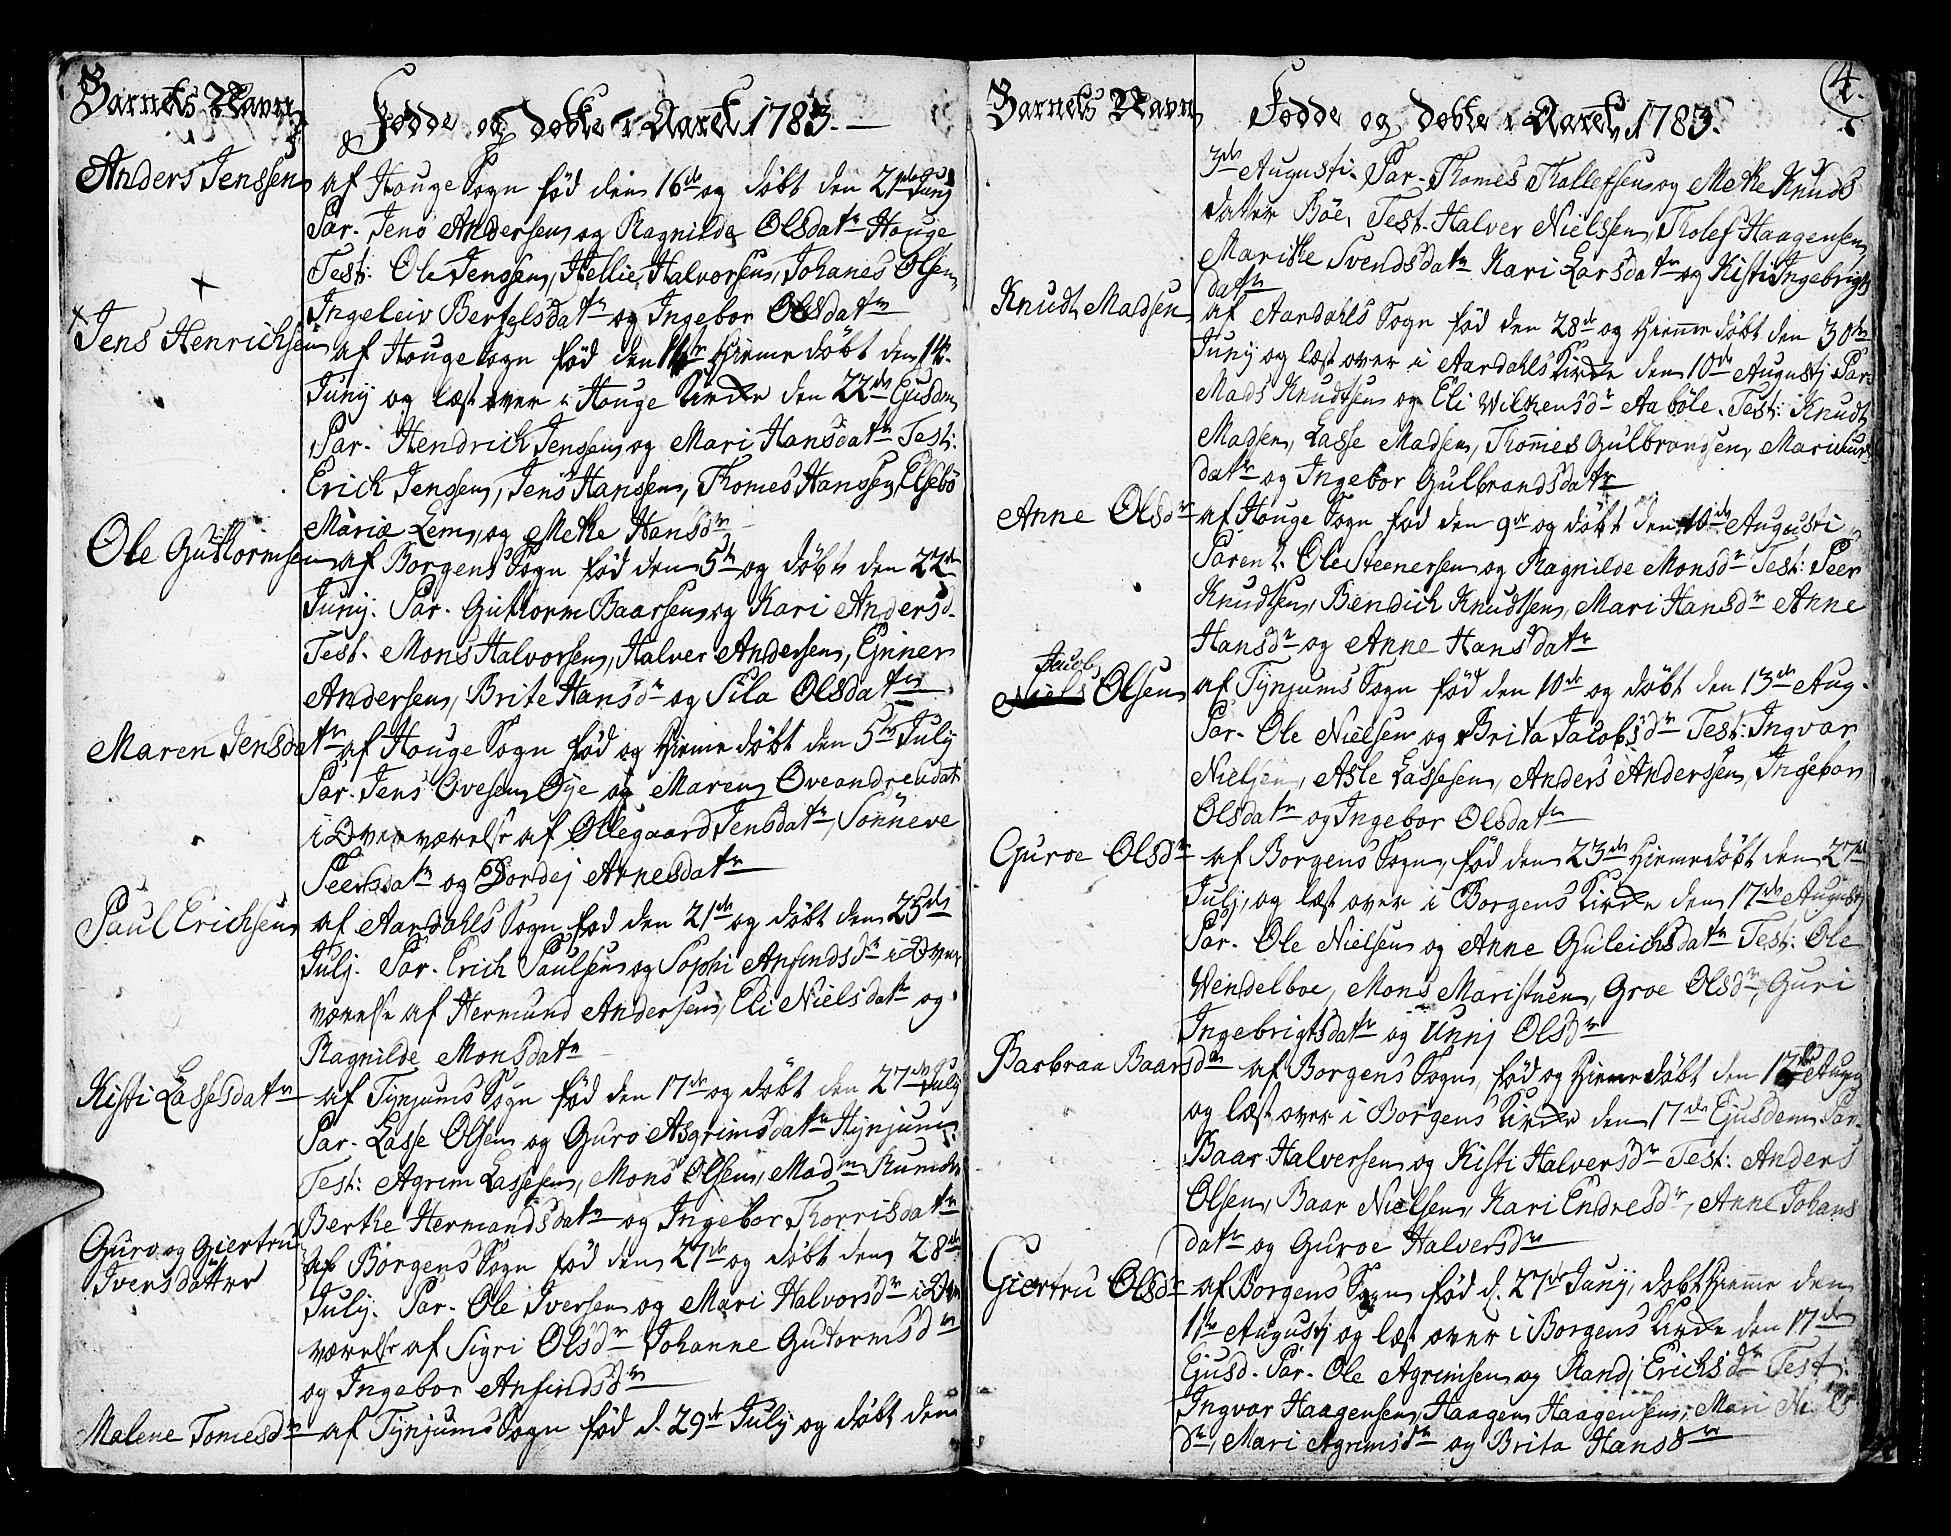 Barnets Navn
Fødde og døbte i Aaret 1783.
Anders Jenssen af Houge Sogn fød den 16de og døbt den 21de Junj
Par. Jens Andersen og Ragnilde Olsdatr Houge
Test: Ole Jenssen, Hellie Halvorsen, Johanes Olsen,
Ingeleiv Bertelsdatr og Ingebor Olsdatr
Jens Henrichsen af Houge Sogn fød den Hieme døbt den 14.
Junij og læst over i Houge Kirche den 22de Ejusdem
Par. Hendrich Jenssen og Mari Hansdatr Test:
Erich Jenssen, Jens Hanssen, Thomes Hanssen, Elsebe
Mariæ Lem, og Mette Hansdr
Ole Guttormsen af Borgens Sogn fød den 5te og døbt den 22de
Junij. Par. Guttorm Baarsen og Kari Andersd.
Test. Mons Halvorsen, Halver Andersen, Ejnner
Andersen, Brite Hansdr og Sila Olsdatr
Maren Jensdatr af Houge Sogn fød og Hieme døbt den 5te July
Par. Jens Ovesen Øye og Maren Oveandreudat
i Overværelse af Ollegaard Jensdatr, Sønneve
Peersdatr og Dordej Arnesdatr
Paul Erichsen af Aardahls Sogn fød den 21de og døbt den 25de
Julj. Par. Erich Paulsen og Sophi Anfindsdr i Over
værelse af Hermund Andersen, Eli Nielsdatr og
Ragnilde Monsdatr
Kisti Lassesdatr af Tynjums Sogn fød den 17de og døbt den 27de July
Par. Lasse Olsen og Guro Asgrimsdatr Hynjum
Test: Agrim Lassesen, Mons Olsen, Madm Rumohr
Berthe Hermandsdatr og Ingebor Thorrisdatr
Guro og Giertru af Borgens Sogn fød den 27de og døbt den 28de
Iversdatter
July. Par. Ole Iversen og Mari Halvorsdr i Over
værelse af Sigri Olsdr Johanne Gutormsdr
og Ingebor Anfindsdr
Malene Tomesdr af Tynjums Sogn fød d. 29de July og døbt den
4.
Barnets Navn
Fødde og døbte i Aaret 1783.
3de Augusti. Par. Thomes Thollefsen og Mette Knuds
datter Bøe, Test. Halver Nielssen, Tholef Haagensen,
Marithe Svendsdatr Kari Larsdatr og Kisti Ingebrigts
datr
Knudt Madsen af Aardahls Sogn fød den 28de og Hieme døbt den 30te
Junij og læst over i Aardahls Kirche den 10de Augustj Par.
Mads Knudtsen og Eli Wilkensdr Aabøle. Test: Knudt
Madsen, Lasse Madsen, Thomes Gulbrandsen,
datr og Ingebor Gulbrandsdatr
Anne Olsdr af Houge Sogn fød den 9de og døbt den 10de Augusti
Parent. Ole Steenersen og Ragnilde Monsdr Test: Peer
Knudtsen, Bendich Knudtsen, Mari Hansdr Anne
Hansdr og Anne Hansdatr
Jacob
Niels Olsen af Tynjums Sogn fød den 10de og døbt den 13de Aug.
Par. Ole Nielsen og Brita Jacobsdr Test: Ingvar
Nielsen, Asle Lassesen, Anders Anderssen, Ingebor
Olsdatr og Ingebor Olsdatr
Guroe Olsdr af Borgens Sogn, fød den 23de Hieme døbt den 27de
Julj, og læst over i Borgens Kirche den 17de Augustj
Par. Ole Nielsen og Anne Guleichsdatr Test: Ole
Wendelboe, Mons Maristuen, Groe Olsdr, Guri
Ingebrigtsdatr og Unnj Olsdr
Barbraa Baarsdr af Borgens Sogn, fød og Hieme døbt den Aug
og læst over i Borgens Kirche den 17de Ejusdem Par.
Baar Halversen og Kisti Halversdr Test: Anders
Olsen, Baar Nielsen, Kari Endresdr, Anne Johans
datr og Guroe Halversdr
Giertru Olsdr af Borgens Sogn fød d. 27de Junij, døbt Hieme den
11te Augustj og læst over i Borgens Kirche den 17de
Ejusd. Par. Ole Agrimsen og Randj Erichsdr Test:
Ingvar Haagensen, Haagen Haagensen, Mari Niels
dr, Mari Agrimsdr og Brita Hansdr